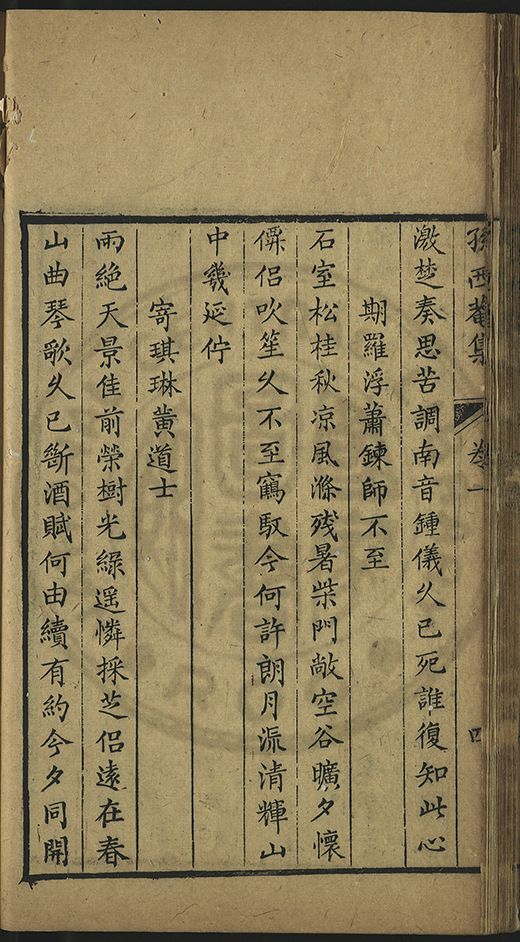 孫西菴集 卷一 四
激楚奏思苦調南音鍾儀久已死誰復知此心
期羅浮蕭鍊師不至
石室松桂秋凉風滌残暑柴門敞空谷曠夕懷
僊侶吹笙久不至鶴馭今何許朗月流清輝山
中幾延佇
寄琪琳黄道士
雨絶天景佳前榮樹光綠遥憐採芝侣遠在春
山曲琴歌久已斷酒賦何由續有約今夕同開